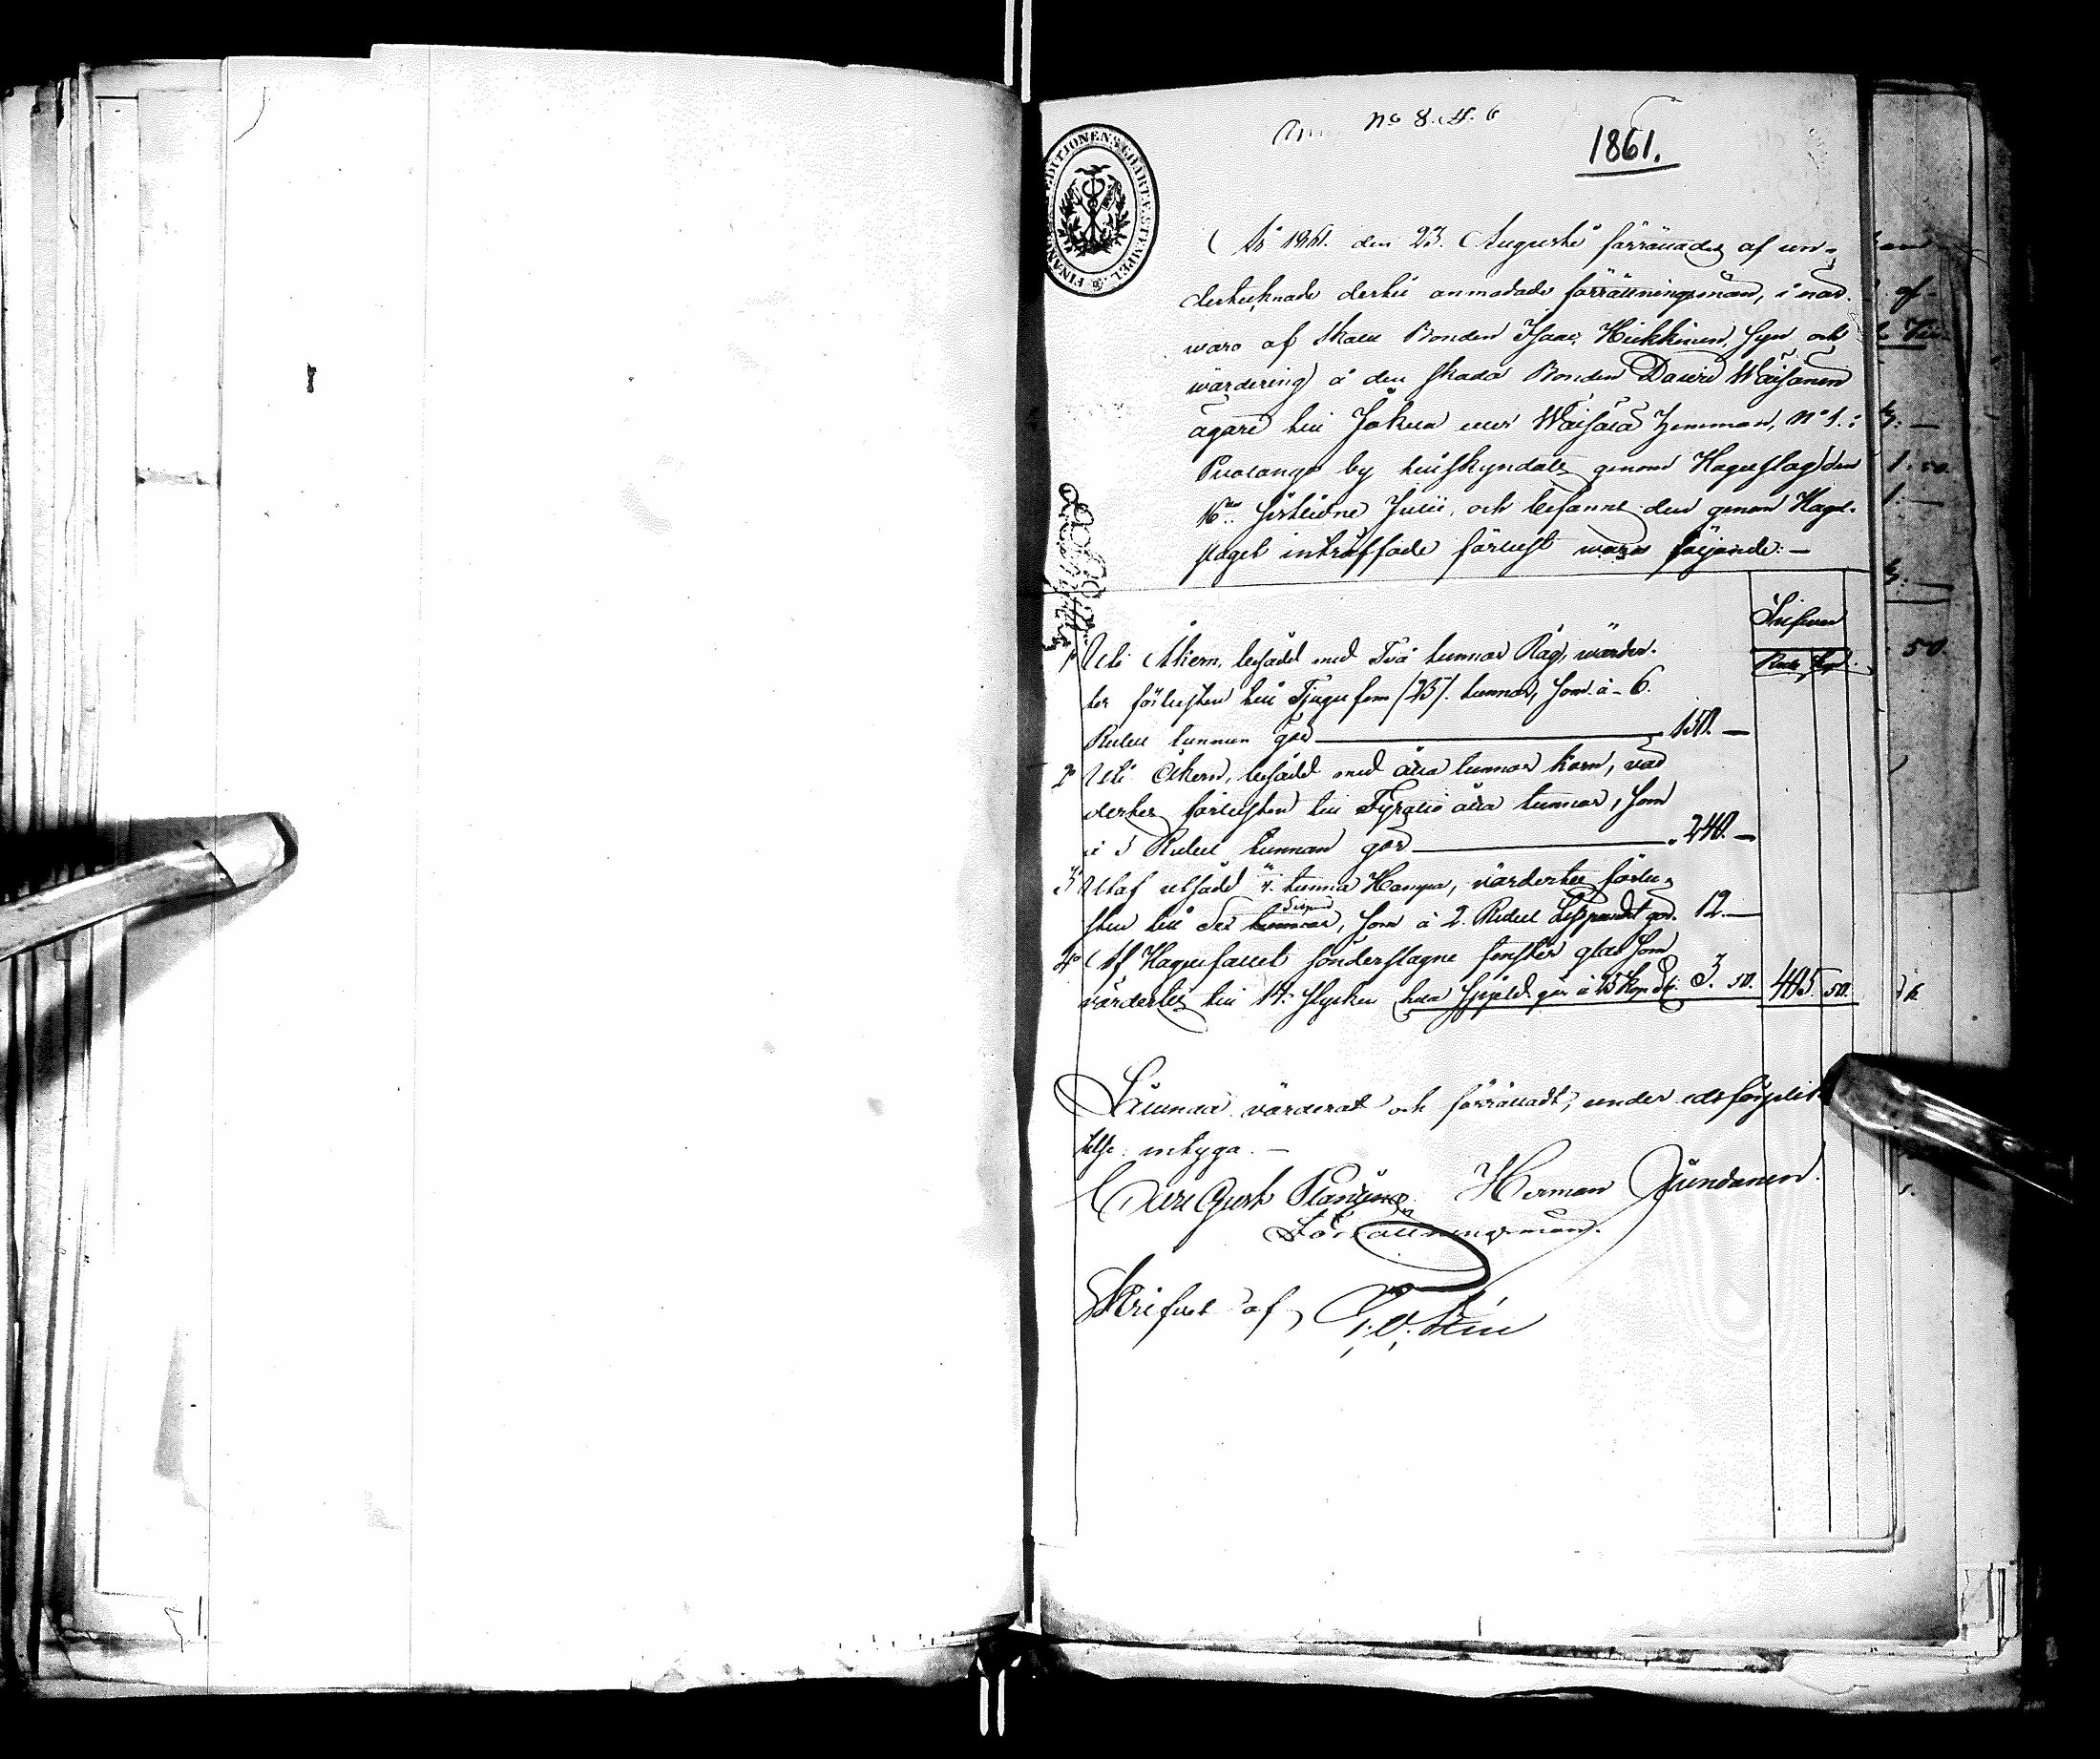 No 8. Lit. 6
1861.
FINANS EXPEDITIONENS CHARTÆ STEMPEL.
År 1861. den 23. Augusti förrättades af un-
dertecknade dertill anmodade förrättningsmän, i när-
waro af Bonden Isaac Heikkinen, syn och
wärdering å den skada Bonden David Wäisänen
ägare till Jokela eller Wäisälä hemman, No 1. i
Puolango by tillskyndats genom Hagelslag den
16de förflidne Julii, och befanns den genom Hagel-
slaget inträffade förlust wara följande: —
Silfwer
Rub. Kop.
1o Uti Åkern, besådd med Två tunnor Råg, wärder-
tes förlusten till Tjugu fem /25/. tunnor, som à 6.
Rubel tunnan gör 150. —
2o Uti Åkern, besådd med åtta tunnor korn, vär
dertes förlusten till Fyratio åtta tunnor, som
à 5 Rubel tunnan gör 240. —
3o Utaf utsådd tunna Hampa, värdertes förlu-
sten till Sex tunnor, Lispund som à 2. Rubel Lispundet gör. 12. —
4o Af Hagelfallet sönderslagne fenster glas som
värdertes till 14. stycken hela gör à 25 Kop. St: 3. 50. 405. 50.
Sålunda värderat och förrättadt, under edsförplik
telse intyga. —
Carl Gust Planting Herman Jundanen.
Förrättningsmän.
Skrifvet af